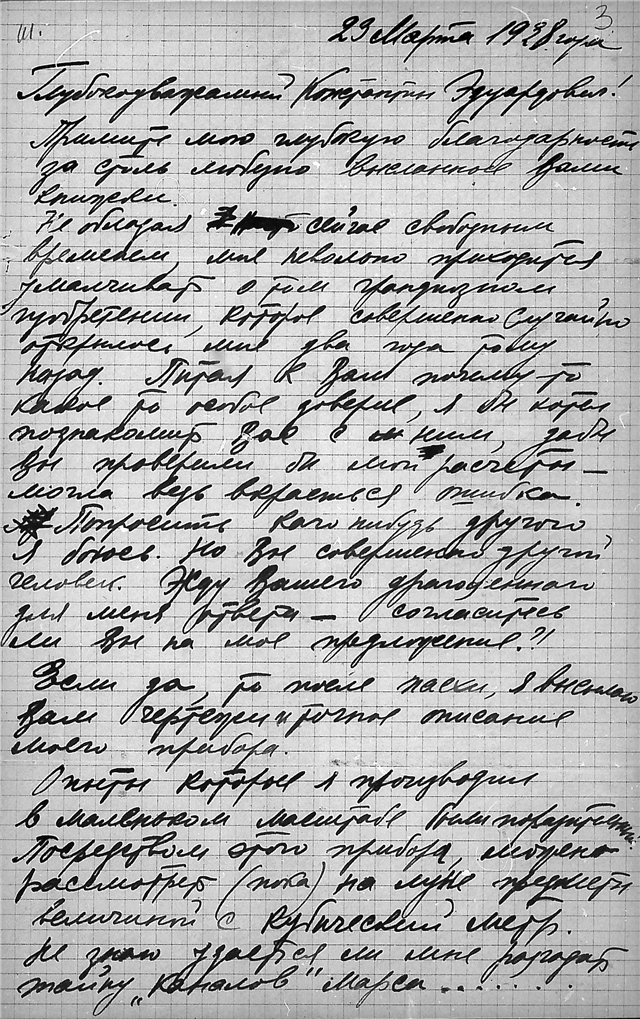 III. 3
29 Марта 1928 года
Глубокоуважаемый Константин Эдуардович!
Примите мою глубокую благодарность
за столь любезно высланное Вами
книжки.
Не обладая сейчас свободным
временем, мне невольно приходится
умалчивать о том грандиозном
изобретении, которое совершенно случайно
открылось мне два года тому
назад. Питая к Вам почему-то
какое то особое доверие, я бы хотел
познакомить Вас с ним, дабы
Вы проверили бы мои расчеты —
могла ведь вкрасться ошибка.
Попросить кого нибудь другого
я боюсь. Но Вы совершенно другой
человек. Жду Вашего драгоценного
для меня ответа — согласитесь
ли Вы на мое предложение?!
Если да, то после пасхи, я вышлю
Вам чертежи и точное описание
моего прибора.
Опыты которые я производил
в маленьком масштабе были поразительны.
Посредством этого прибора, можно
рассмотреть (пока) на луне предметы
величиной с кубический метр.
Не знаю удастся ли мне разгадать
тайну „каналов" Марса . . . . . . .